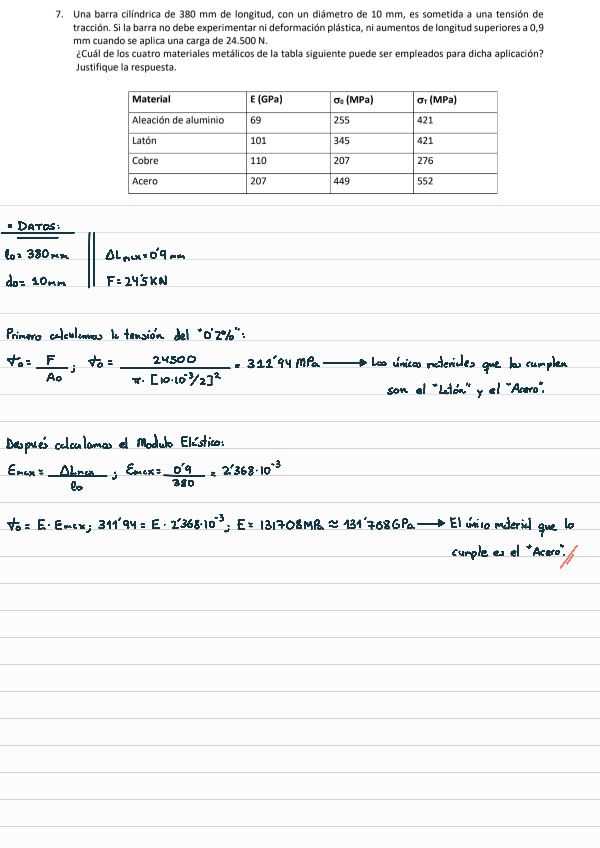 7. Una barra cilíndrica de 380 mm de longitud, con un diámetro de 10 mm, es sometida a una tensión de
tracción. Si la barra no debe experimentar ni deformación plástica, ni aumentos de longitud superiores a 0,9
mm cuando se aplica una carga de 24.500 N.
¿Cuál de los cuatro materiales metálicos de la tabla siguiente puede ser empleados para dicha aplicación?
Justifique la respuesta.
Material E (GPa) σ₀ (MPa) σT (MPa)
Aleación de aluminio 69 255 421
Latón 101 345 421
Cobre 110 207 276
Acero 207 449 552
• DATOS:
l₀= 380mm ΔLmax=0'9 mm
d₀= 10mm F=24'5KN
Primero calculamos la tensión del "0'2%":
σ₀= F/A₀; σ₀= 24500/π·[10·10⁻³/2]² = 311'94 MPa → Los únicos materiales que los cumplen
son el "Latón" y el "Acero".
Después calculamos el Modulo Elástico:
Emax= ΔLmax/l₀; Emax= 0'9/380 = 2'368·10⁻³
σ₀= E·Emax; 311'94 = E·2'368·10⁻³; E= 131708MPa ≈ 131'708GPa → El único material que lo
cumple es el "Acero".